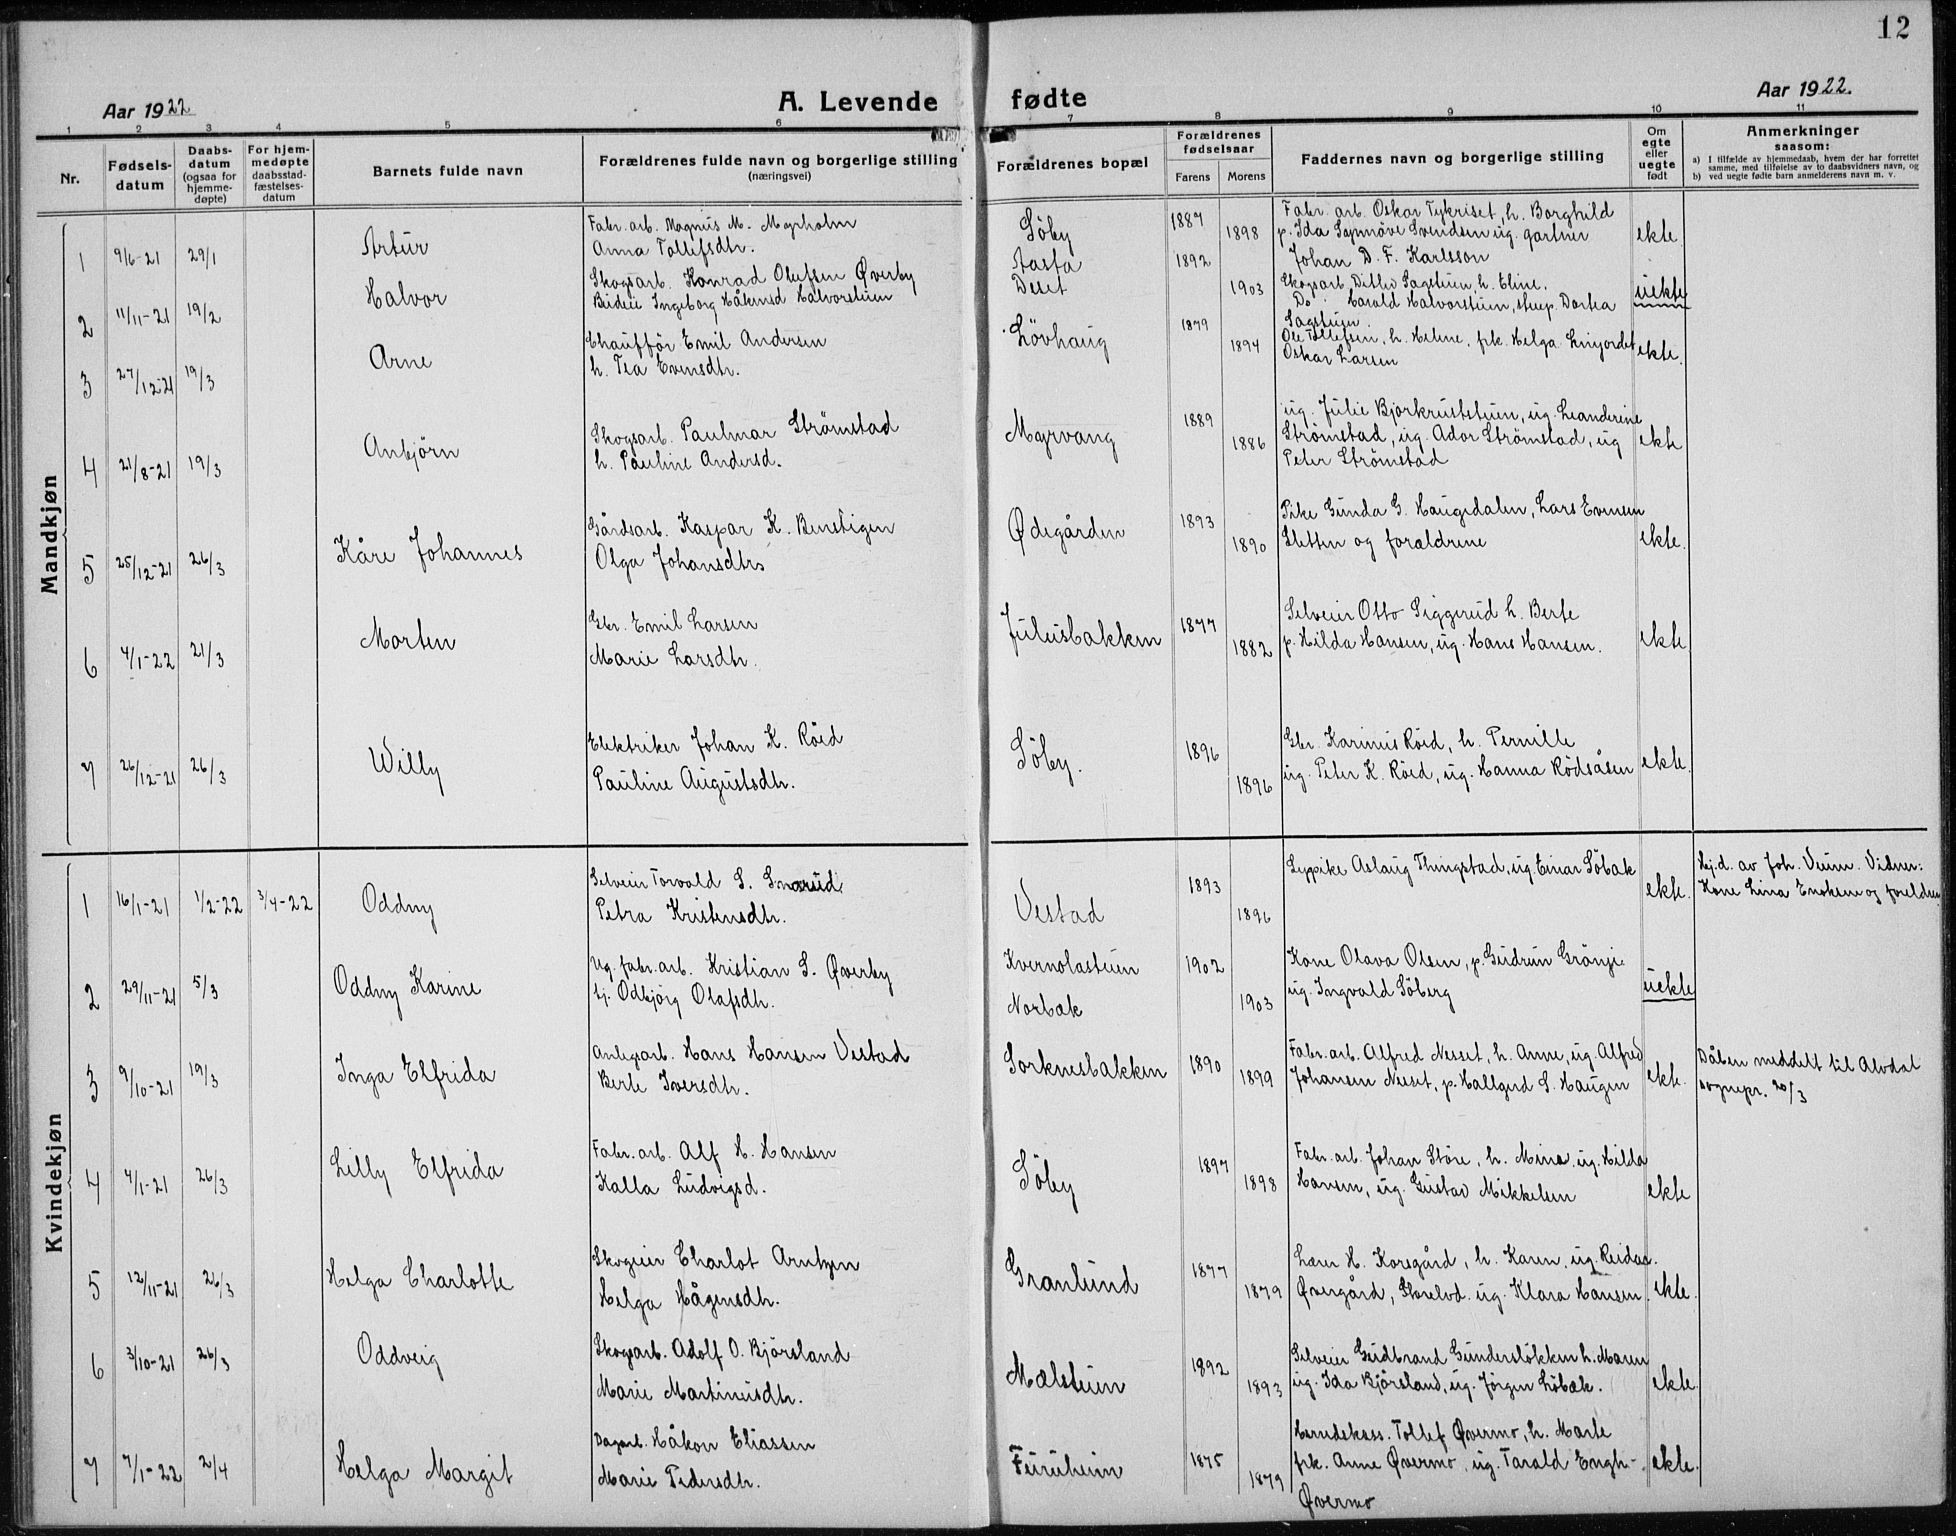 12
Aar 1922
A. Levende fødte
Aar 1922.
1 2 3 4 5 6 7 8 9 10 11
Nr.
Fødsels-
datum
Daabs-
datum
(ogsaa for
hjemme-
døpte)
For hjem-
medøpte
daabsstad-
fæstelses-
datum
Barnets fulde navn
Forældrenes fulde navn og borgerlige stilling
(næringsvei)
Forældrenes bopæl
Forældrenes
fødselsaar
Farens Morens
Faddernes navn og borgerlige stilling
Om
egte
eller
uegte
født
Anmerkninger
saasom:
a) I tilfælde av hjemmedaab, hvem der har forrettet
samme, med tilføielse av to daabsvidners navn, og
b) ved uegte fødte barn anmelderens navn m. v.
Mandkjøn
1 9/6-21 29/1 Artur
Fabr. arb. Magnus M. Myrholm
Anna Tollefsdtr.
Söby 1887 1898
Fabr. arb. Oskar Tykriset, h. Borghild
p. Ida Synnöve Svendsen ug. gartner
Johan D. F. Karlsson
ekte
2 11/11-21 19/2 Halvor
Skogsarb. Konrad Olufsen Øverby
Budeie Ingeborg Håkensd Halvorstuen
Aasta
Deset
1892 1903
Skogsarb. Ditlev Sagstuen, h. Eline.
Do. Harald Halvorstuen, Dortea
Sagstuen
uekte
3 27/12-21 19/3 Arne
Chaufför Emil Andersen
h. Tea Evensdtr.
Lövhaug 1879 1894
Ole Tollefsen, h. Helene, frk. Helga
Oskar Larsen
ekte.
4 21/8-21 19/3 Anbjörn
Skogsarb. Paulmar Strömstad
h. Pauline Andersd.
Myrvang 1889 1886
ug. Julie Bjørkrustsstuen, ug. Leanderine
Strömstad, ug. Ador Strömstad, ug
Peter Strömstad
ekte
5 25/12-21 26/3 Kåre Johannes
Gårdsarb. Kaspar K. Benstigen
Olga Johansdtr
Ødegården 1893 1890
Pike Gunda G. Haugsdalen, Lars Evensen
Sletten og forældrene
ekte.
6 4/1-22 21/3 Morten
Gbr. Emil Larsen
Marie Larsdtr.
Juliusbakken 1877 1882
Selveier Otto Siggerud h. Berte
p. Hilda Hansen, ug. Hans Hansen.
ekte
7 26/12-21 26/3 Willy
Elektriker Johan K. Röed
Pauline Augustsdtr.
Söby. 1896 1896
Gbr. Karinius Röed, h. Pernille
ug. Peter K. Röed, ug. Hanna Rödsåsen
ekte.
Kvindekjøn
1 16/1-21 1/2-22 3/4-22 Oddny
Selveier Torvald S. Snærud
Petra Kristensdtr.
Vestad 1893 1896
Sypike Aslaug Thingstad, ug. Einar Söbak
ekte.
Hj.d. av Joh. Veum. Vidner:
Kone Lina Enoksen og foreldrene
2 29/11-21 5/3 Oddny Karine
Ug. fabr. arb. Kristian S. Øverby
tj. Odbjörg Olafsdtr.
Kvernolastuen
Norbak
1902 1903
Kone Olava Olsen, p. Gudrun Grönji
ug. Ingvald Söberg
uekte
3 9/10-21 19/3 Inga Elfrida
Anlegsarb. Hans Hansen Vestad
Berte Iversdtr.
Sorknesbakken 1890 1899
Fabr. arb. Alfred Nesset, h. Anne, ug. Alfred
Johansen Nesset, p. Hallgerd S. Haugen
ekte.
Dåben meddelt til Alvdal
sognepr. 20/3
4 4/1-21 26/3 Lilly Elfrida
Fabr. arb. Alf H. Hansen
Kalla Ludvigsd.
Söby 1897 1898
Fabr. arb. Johan Störe, h. Mina, ug. Hilda
Hansen, ug. Gustav Mikkelsen
ekte
5 12/11-21 26/3 Helga Charlotte
Skogeier Charlot Arntzen
Helga Hågensdtr.
Granlund 1877 1879
Lærer H. Korsgård, h. Karen, ug. Reidar.
Øvergård, Storelvd. ug. Klara Hansen.
ekte.
6 3/10-21 26/3 Oddveig
Skogsarb. Adolf O. Björsland
Marie Martinusdtr.
Mælstuen 1892 1893
Selveier Gudbrand Gunderslökken h. Maren
ug. Ida Björsland, ug. Jörgen Löbæk.
ekte.
7 7/1-22 2/4 Helga Margit
Dagarb. Håkon Eliassen
Marie Pedersdtr.
Furuheim 1875 1879
Herredskass. Tollef Øvermo, h. Marte
frk. Anne Øvermo, ug. Tarald Engh-
Øvermo
ekte.